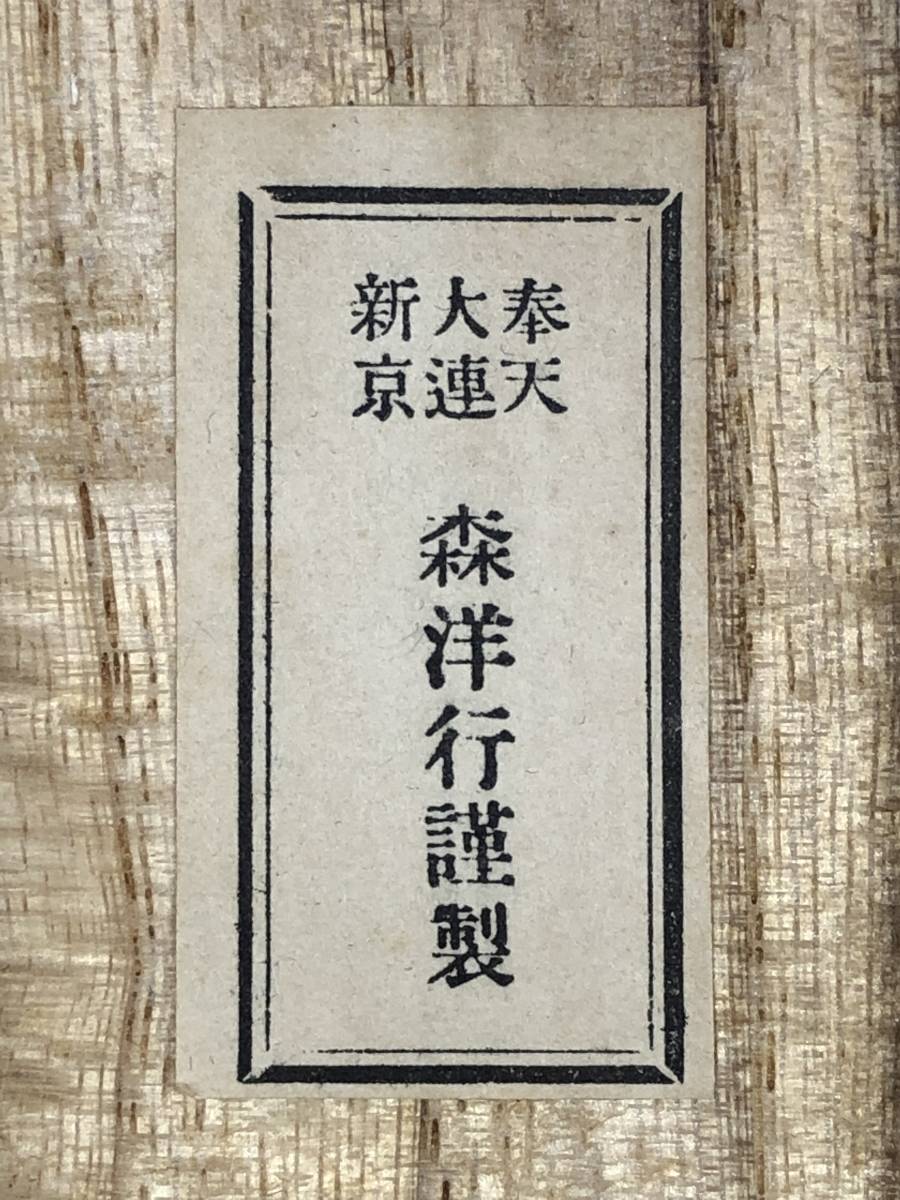 奉天
大連
新京
森洋行謹製